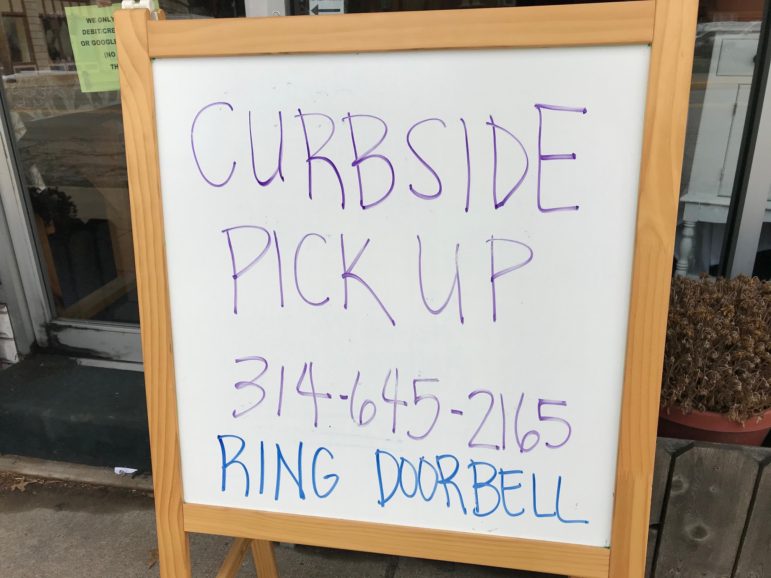 WE ONLY
DEBIT/CRE
OR GOOGLE
(NO
TH
CURBSIDE
PICK UP
314-645-2165
RING DOORBELL